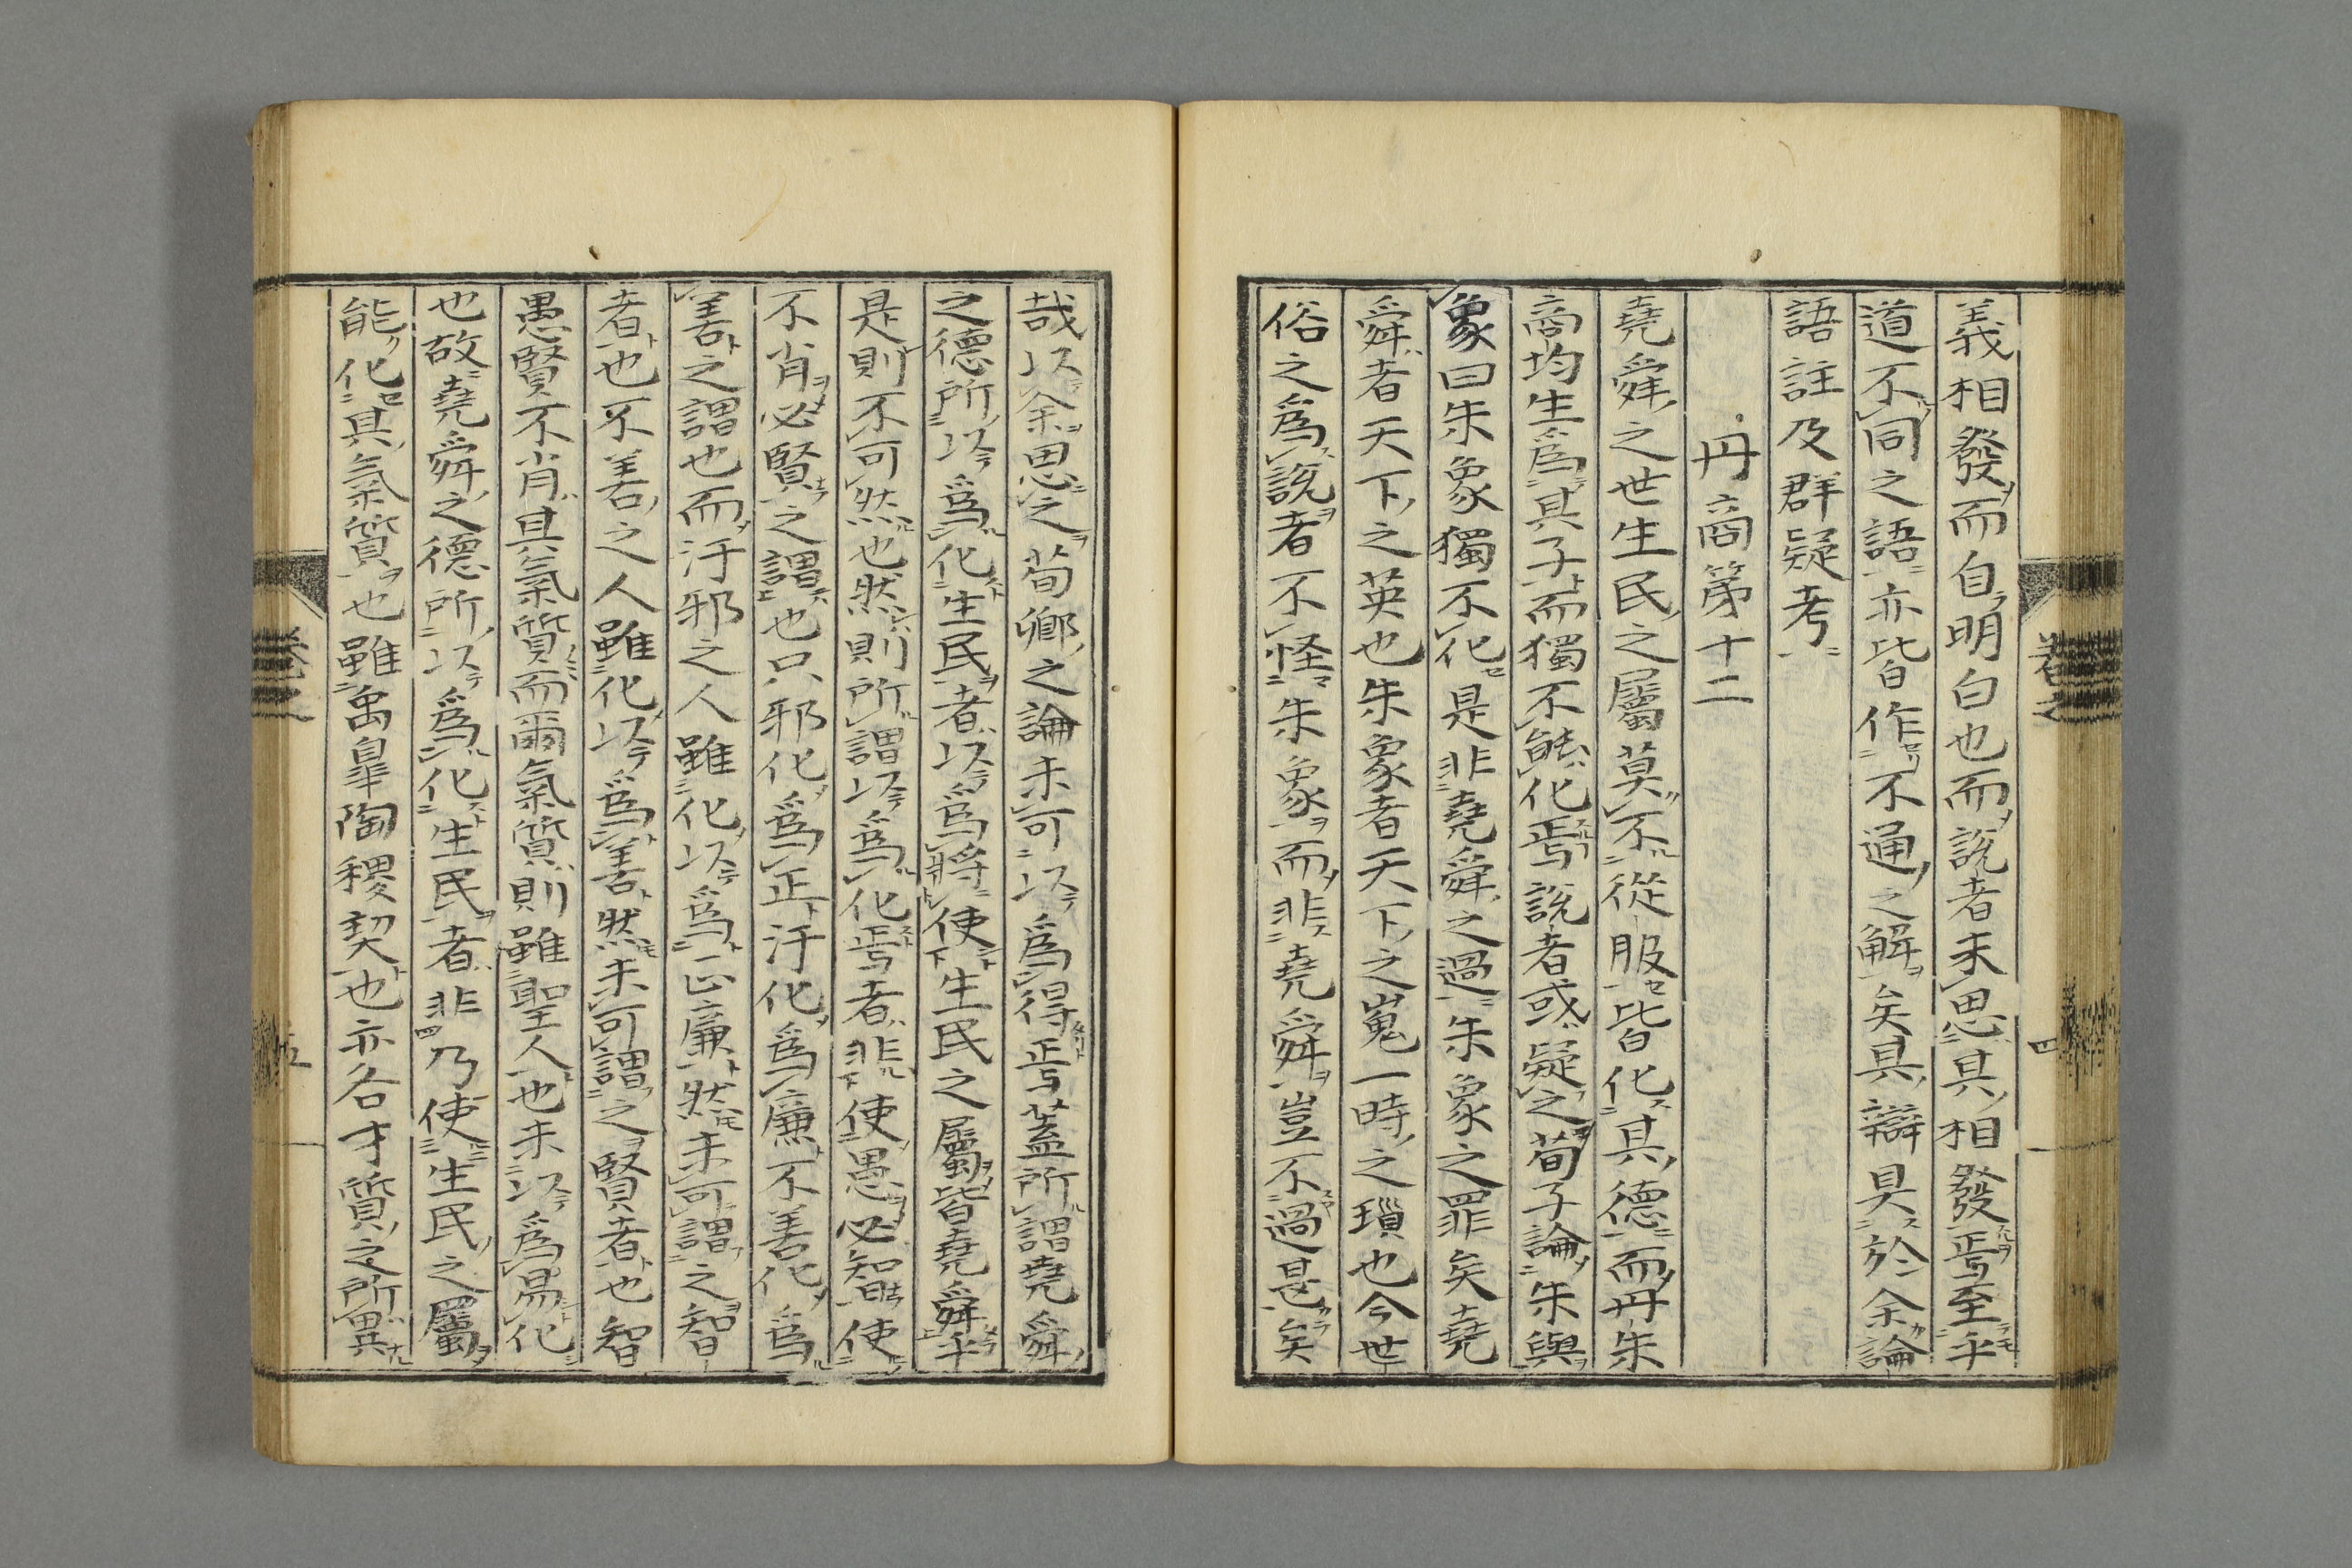 義相發而自明白也而說者未思其相發焉至乎
道不同之語亦皆作不通之解矣其辯具於余論
語註及群疑考
丹商第十二
堯舜之世生民之屬莫不從服皆化其德而丹朱
商均生爲其子而獨不能化焉說者或疑之荀子論朱與
象曰朱象獨不化是非堯舜之過朱象之罪矣堯
舜者天下之英也朱象者天下之嵬一時之瑣也今世
俗之爲說者不怪朱象而非堯舜豈不過甚矣
哉以余思之荀卿之論未可以爲得焉蓋所謂堯舜
之德所以爲化生民者以爲將使生民之屬皆堯舜乎
是則不可然也然則所謂以爲化焉者非使愚必智使
不肖必賢之謂也只邪化爲正汙化爲廉不善化爲
善之謂也而汙邪之人雖化以爲正廉然未可謂之智
者也不善之人雖化以爲善然未可謂之賢者也智
愚賢不肖其氣質而爾氣質則雖聖人也未以爲易化
也故堯舜之德所以爲化生民者非乃使生民之屬
能化其氣質也雖禹皐陶稷契也亦各才質之所異
卷之
四
卷之
五